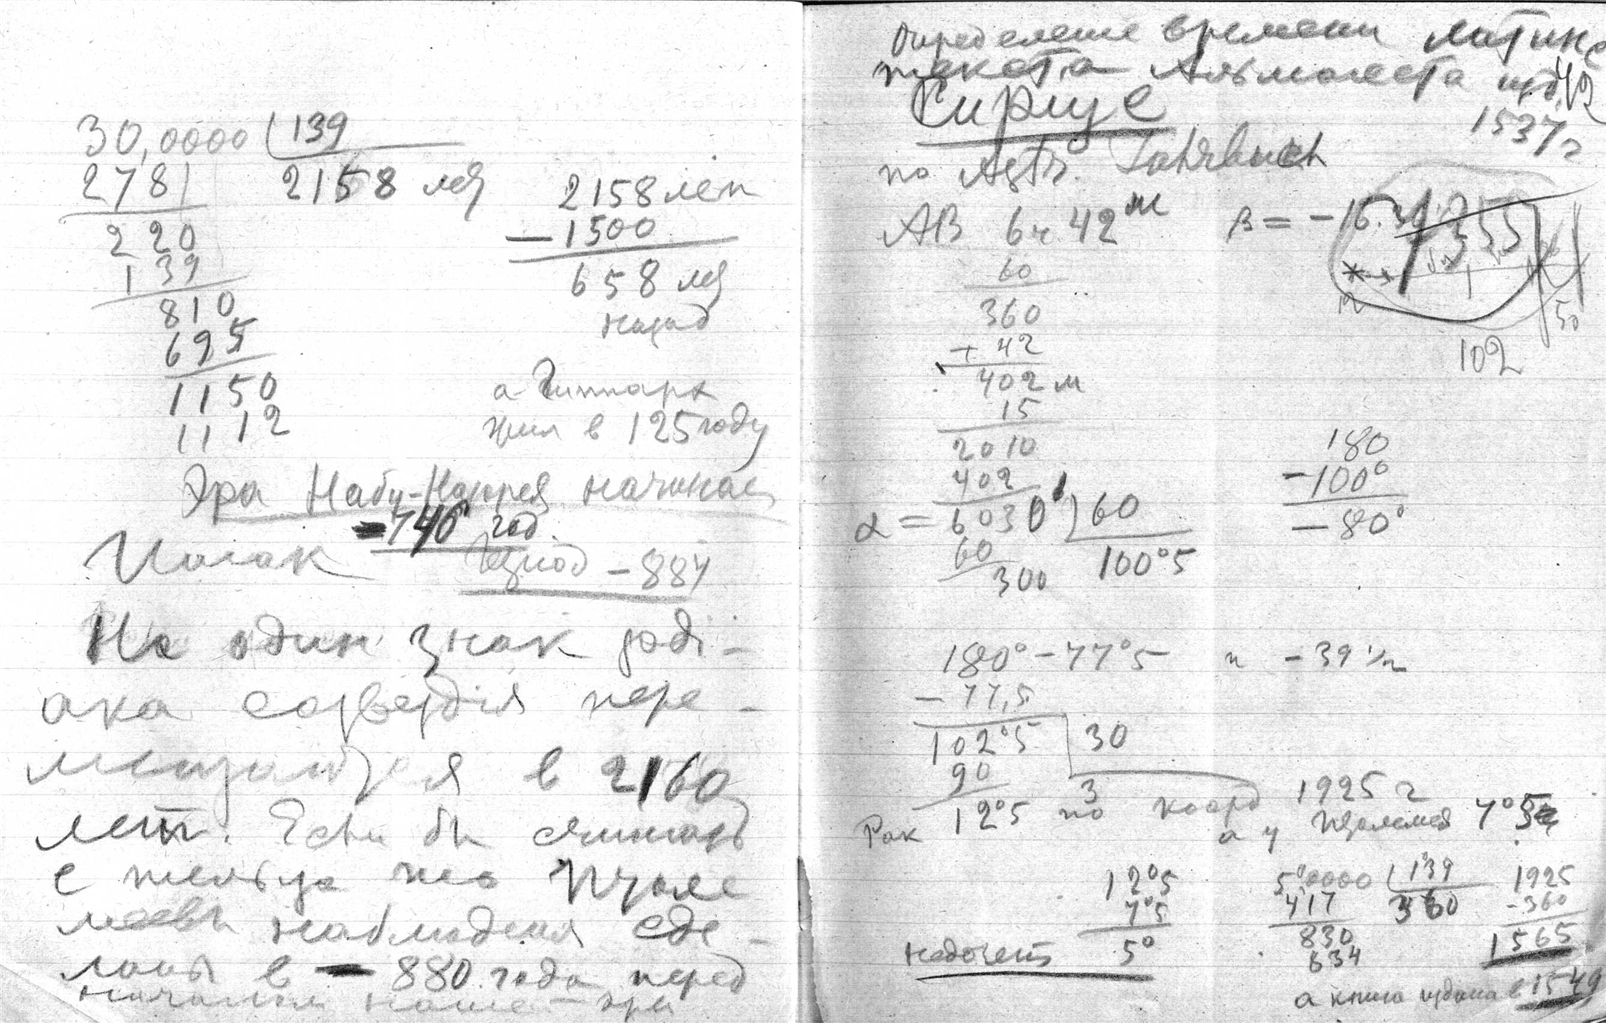 30,0000 139
2781 2158 лет
220
139
810
695
1150
1112
2158 лет
- 1500
658 лет
назад
а Гиппарх
жил в 125 году
Эра Набу-Нассера начинает
- 746 год
период - 884
На один знак зоді-
ака созвездія пере-
мещаются в 2160
лет. Если бы считать
с
наблюдения сде-
ланы в - 880 года перед
началом нашей эры
Определение времени латинс
Альмагеста изд.
1537 г
Сириус
по Astr. Jahrbuch
АВ 6ч 42 m β = -16.39
60
360
+ 42
402 м
15
2010
402
α = 6030' 60
60 100°5
300
1355
12
50
102
180
- 100°
- 80°
180° - 77°5 и - 39 1/2
- 77,5
102°5 30
90 3
Рак 12°5 по коорд 1925 г
а у Птолемея 7°5
12°5
7°5
недочет 5°
5°0000 139
417 360
830
834
1925
- 360
1565
а книга издана в 1549